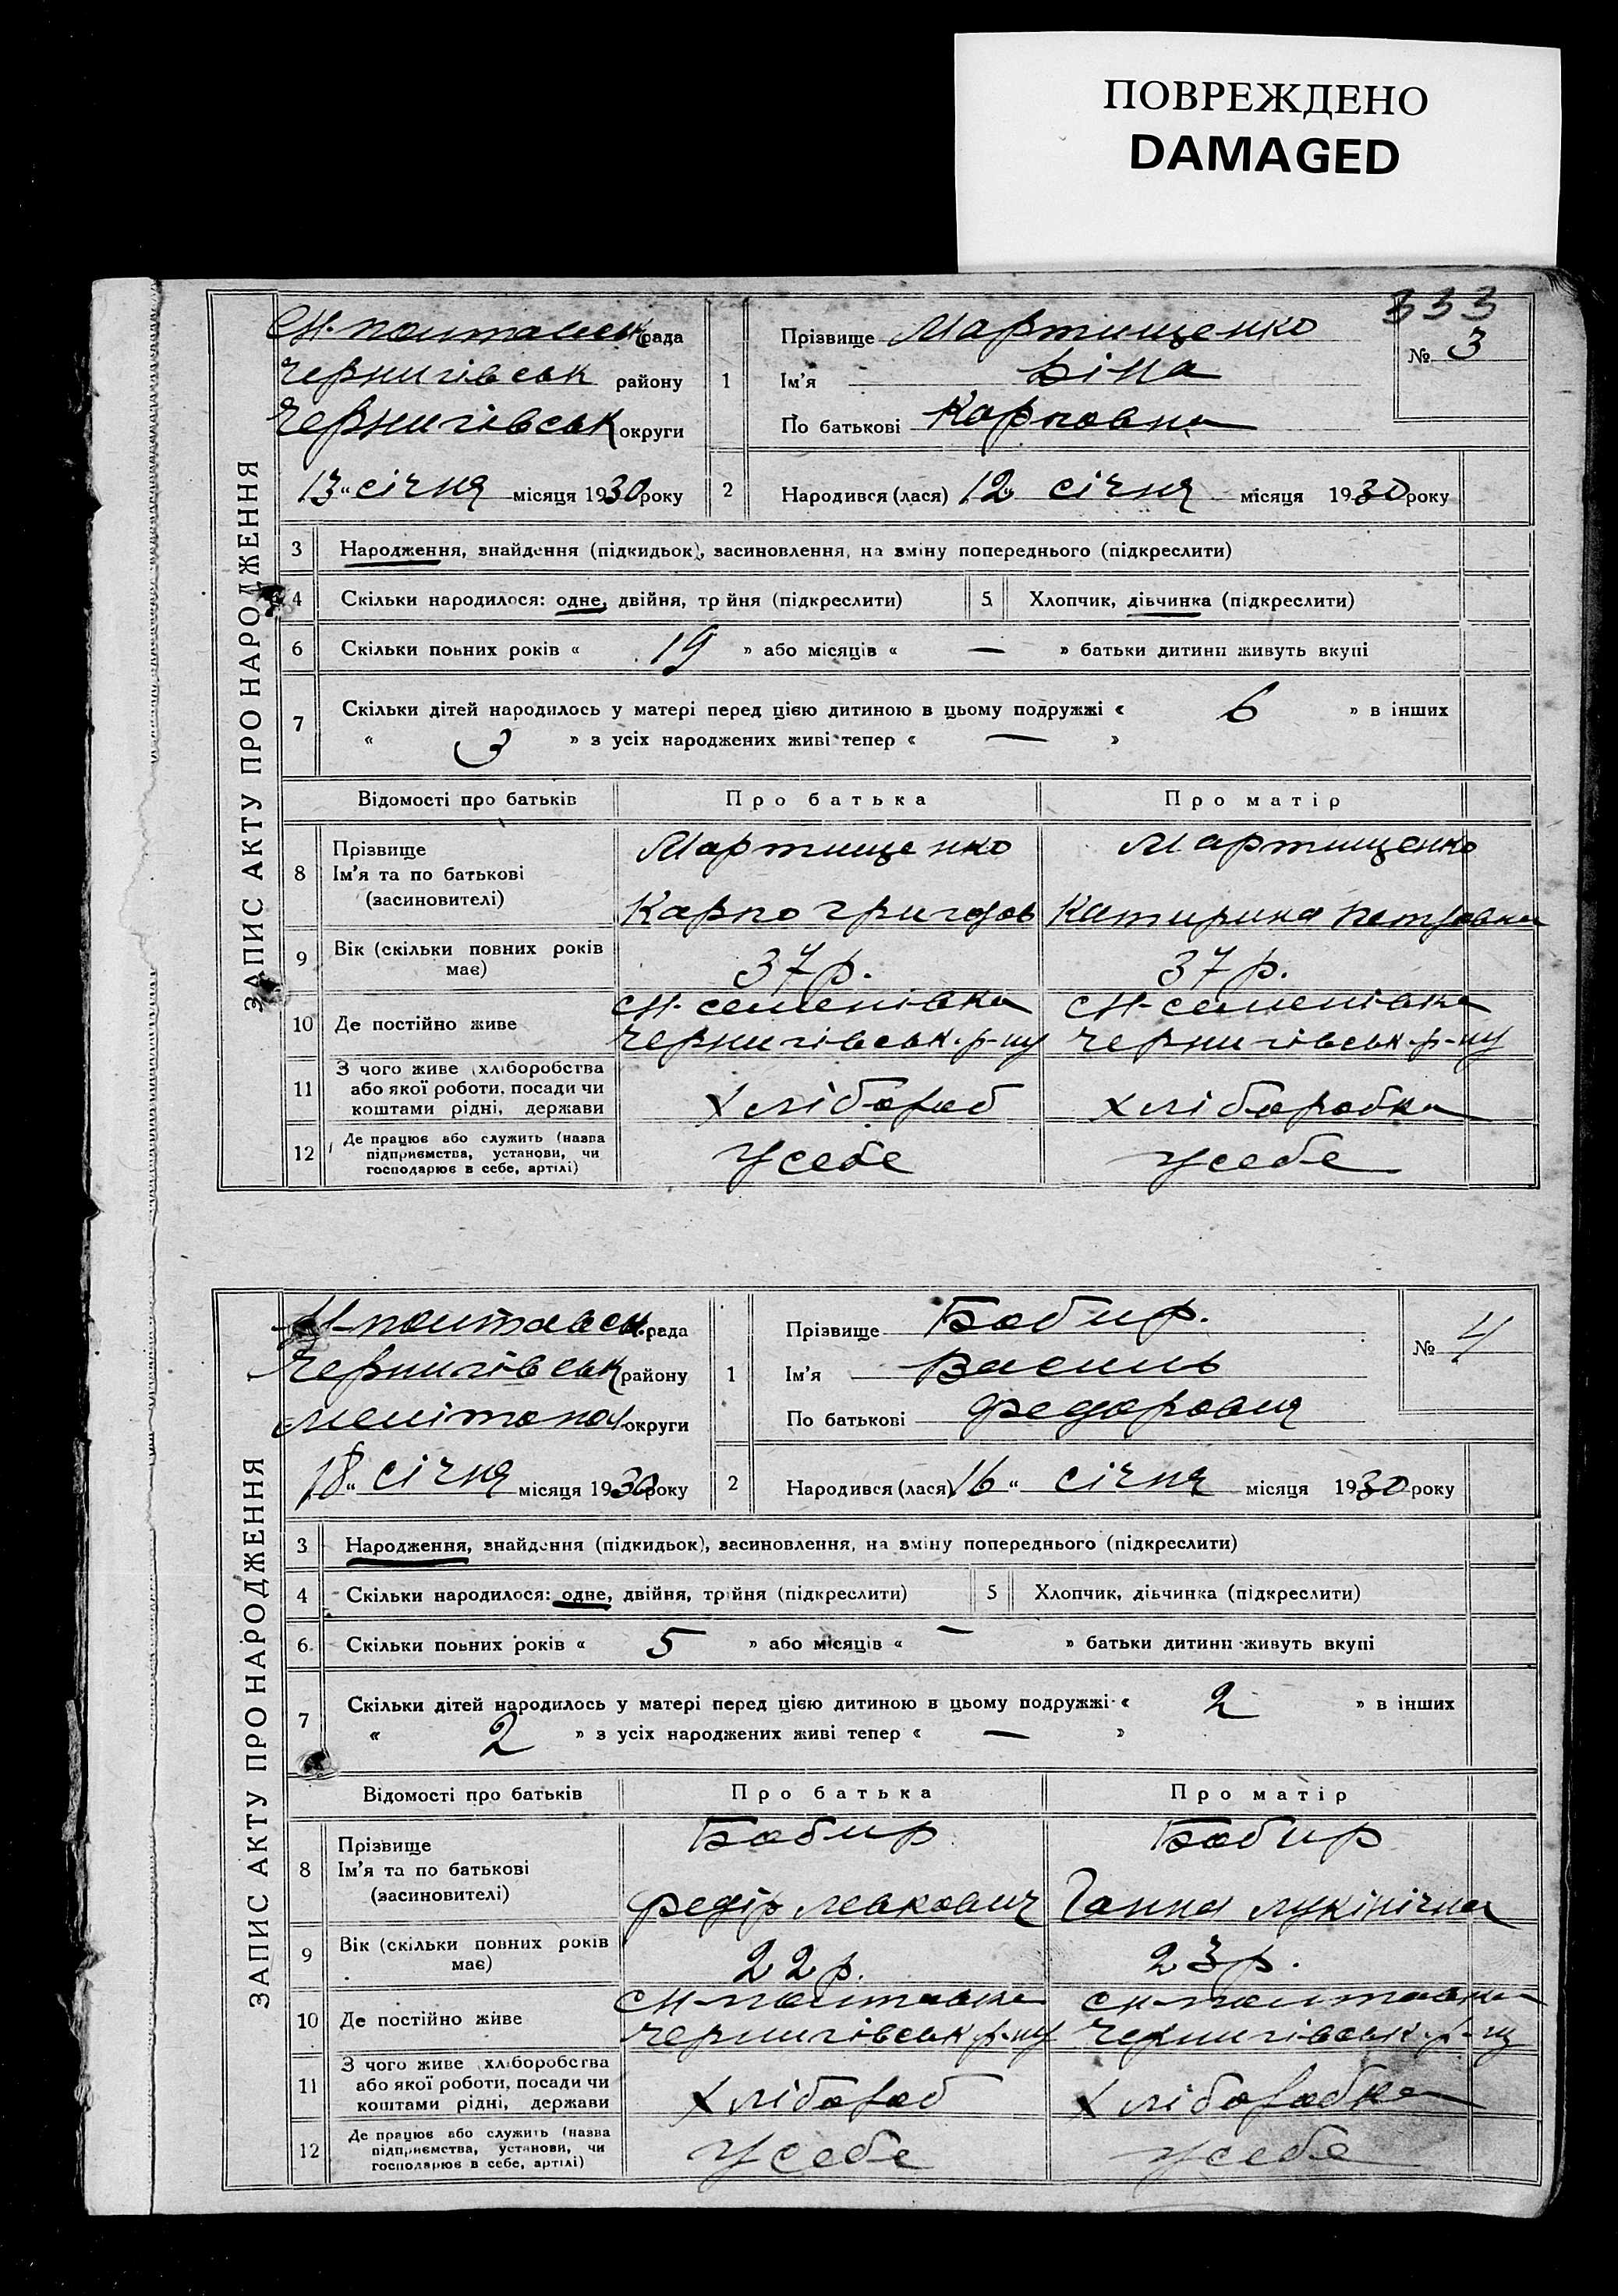 ПОВРЕЖДЕНО
DAMAGED
333
ЗАПИС АКТУ ПРО НАРОДЖЕННЯ
рада
Чернигівськ району
Чернигівськ округи
13 „ січня місяця 1930 року
1
Прізвище Мартищенко
Ім'я
По батькові Карповна
№ 3
2
Народився (лася) 12 „ січня місяця 1930 року
3 Народження, знайдення (підкидьок), засиновлення, на зміну попереднього (підкреслити)
4 Скільки народилося: одне, двійня, трійня (підкреслити) 5 Хлопчик, дівчинка (підкреслити)
6 Скільки повних років « 19 » або місяців « — » батьки дитини живуть вкупі
7 Скільки дітей народилось у матері перед цією дитиною в цьому подружжі « 6 » в інших
« 3 » з усіх народжених живі тепер « — »
Відомості про батьків Про батька Про матір
8 Прізвище
Ім'я та по батькові
(засиновителі)
Мартищенко Мартищенко
Карпо Григоров Катирина Петровна
9 Вік (скільки повних років має) 37 р. 37 р.
10 Де постійно живе
См. семенівка См. семенівка
Чернигівськ. р-ну Чернигівськ. р-ну
11 З чого живе (хліборобства
або якої роботи, посади чи
коштами рідні, держави
Хлібороб Хліборобка
12 Де працює або служить (назва
підприємства, установи, чи
господарює в себе, артілі)
У себе У себе
ЗАПИС АКТУ ПРО НАРОДЖЕННЯ
рада
Чернигівськ району
Мелітопол округи
18 „ січня місяця 1930 року
1
Прізвище Бобир.
Ім'я Василь
По батькові Федорович
№ 4
2
Народився (лася) 16 „ січня місяця 1930 року
3 Народження, знайдення (підкидьок), засиновлення, на зміну попереднього (підкреслити)
4 Скільки народилося: одне, двійня, трійня (підкреслити) 5 Хлопчик, дівчинка (підкреслити)
6. Скільки повних років « 5 » або місяців « — » батьки дитини живуть вкупі
7 Скільки дітей народилось у матері перед цією дитиною в цьому подружжі « 2 » в інших
« 2 » з усіх народжених живі тепер « — »
Відомості про батьків Про батька Про матір
8 Прізвище
Ім'я та по батькові
(засиновителі)
Бобир Бобир
Федір Левкович Ганна Лукінічна
9 Вік (скільки повних років має) 22 р. 23 р.
10 Де постійно живе
См-полтавка См-полтавка
Чернигівськ. р-ну Чернигівськ. р-ну
11 З чого живе (хліборобства
або якої роботи, посади чи
коштами рідні, держави
Хлібороб Хліборобка
12 Де працює або служить (назва
підприємства, установи, чи
господарює в себе, артілі)
У себе У себе